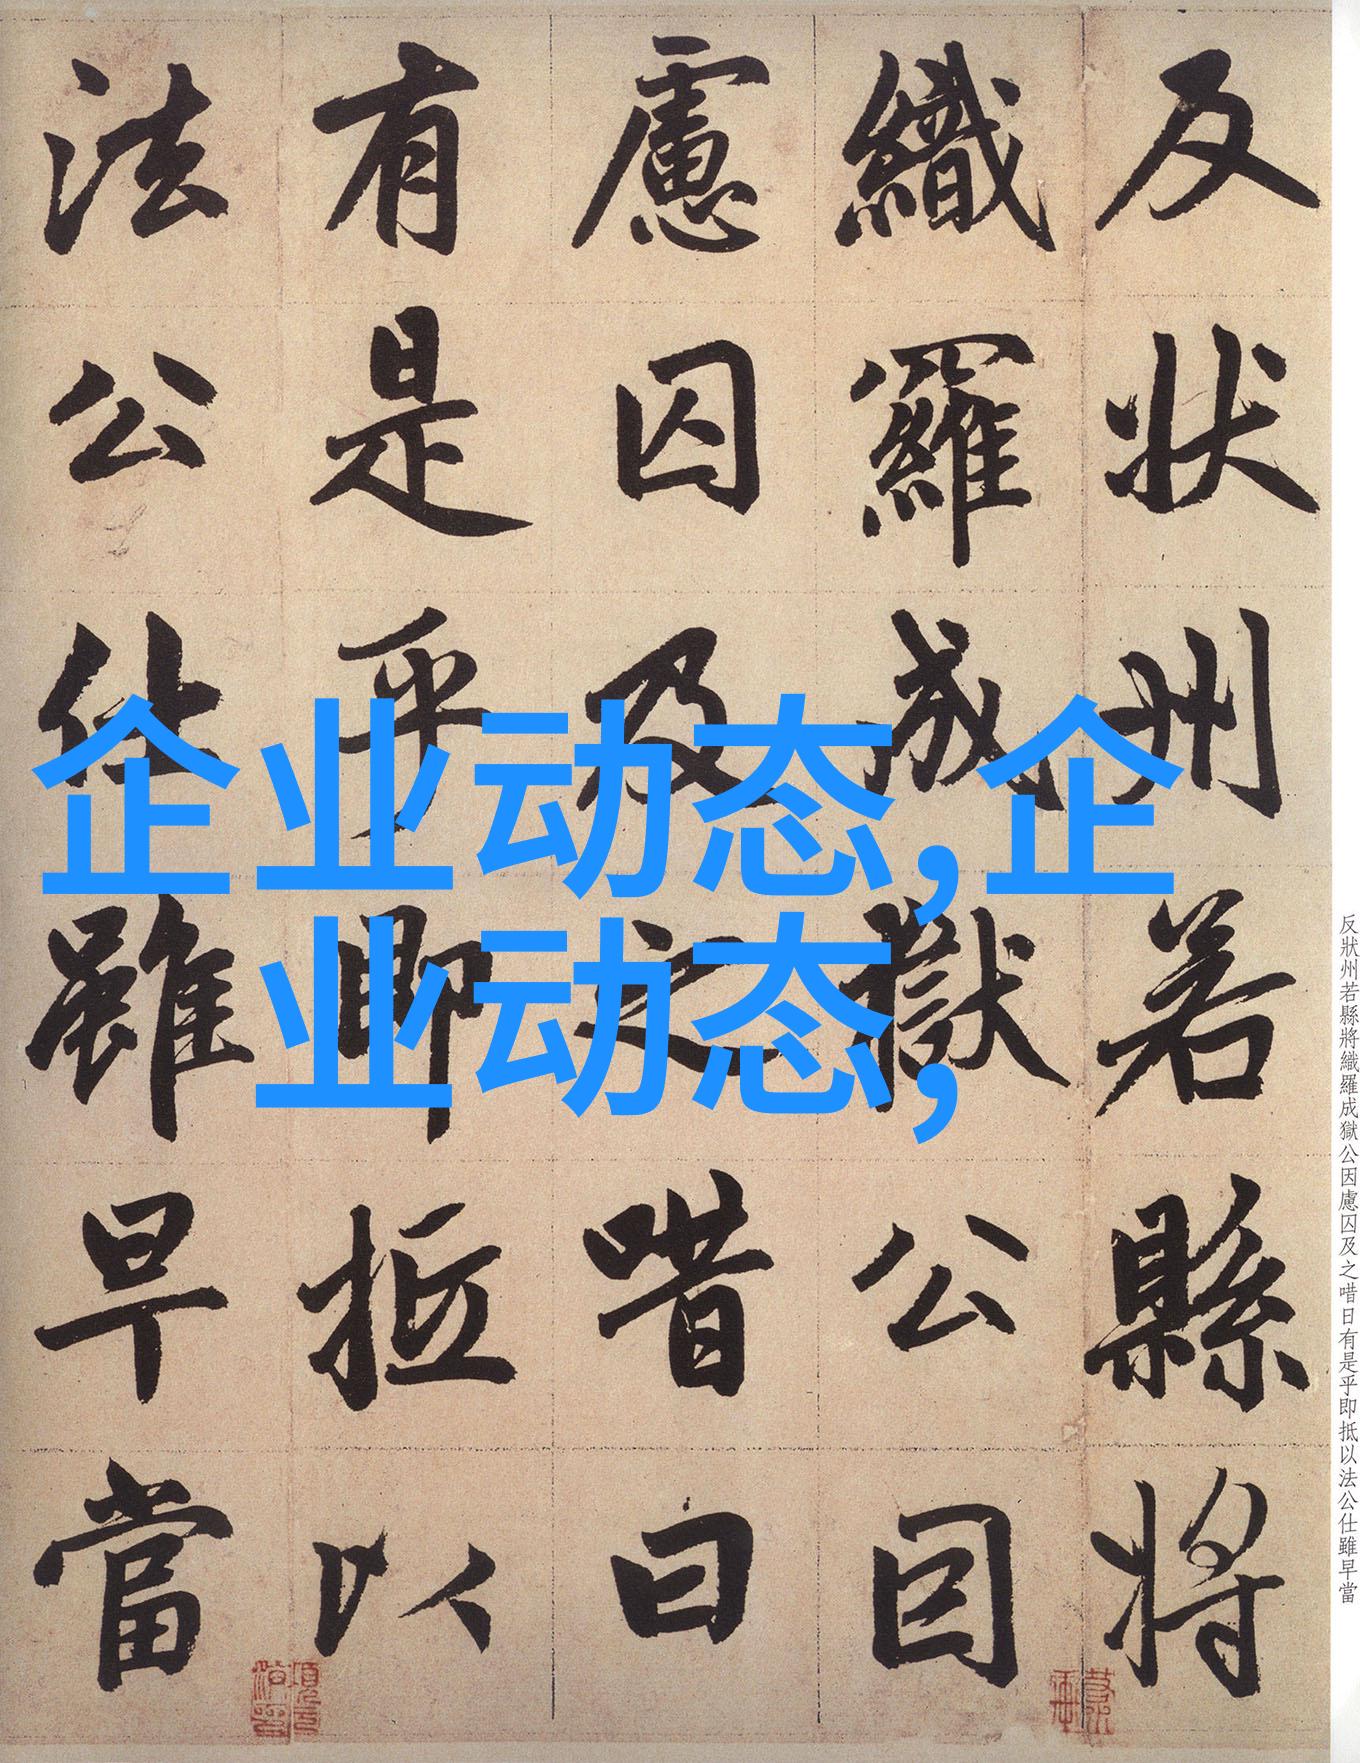 反狀州若縣將
織羅成獄公因
慮囚及之唶曰
有是乎即抵以
法公仕雖早當
企业动态,企
业动态,
反狀州若縣將織羅成獄公因慮囚及之唶日有是乎即抵以法公仕雖早當